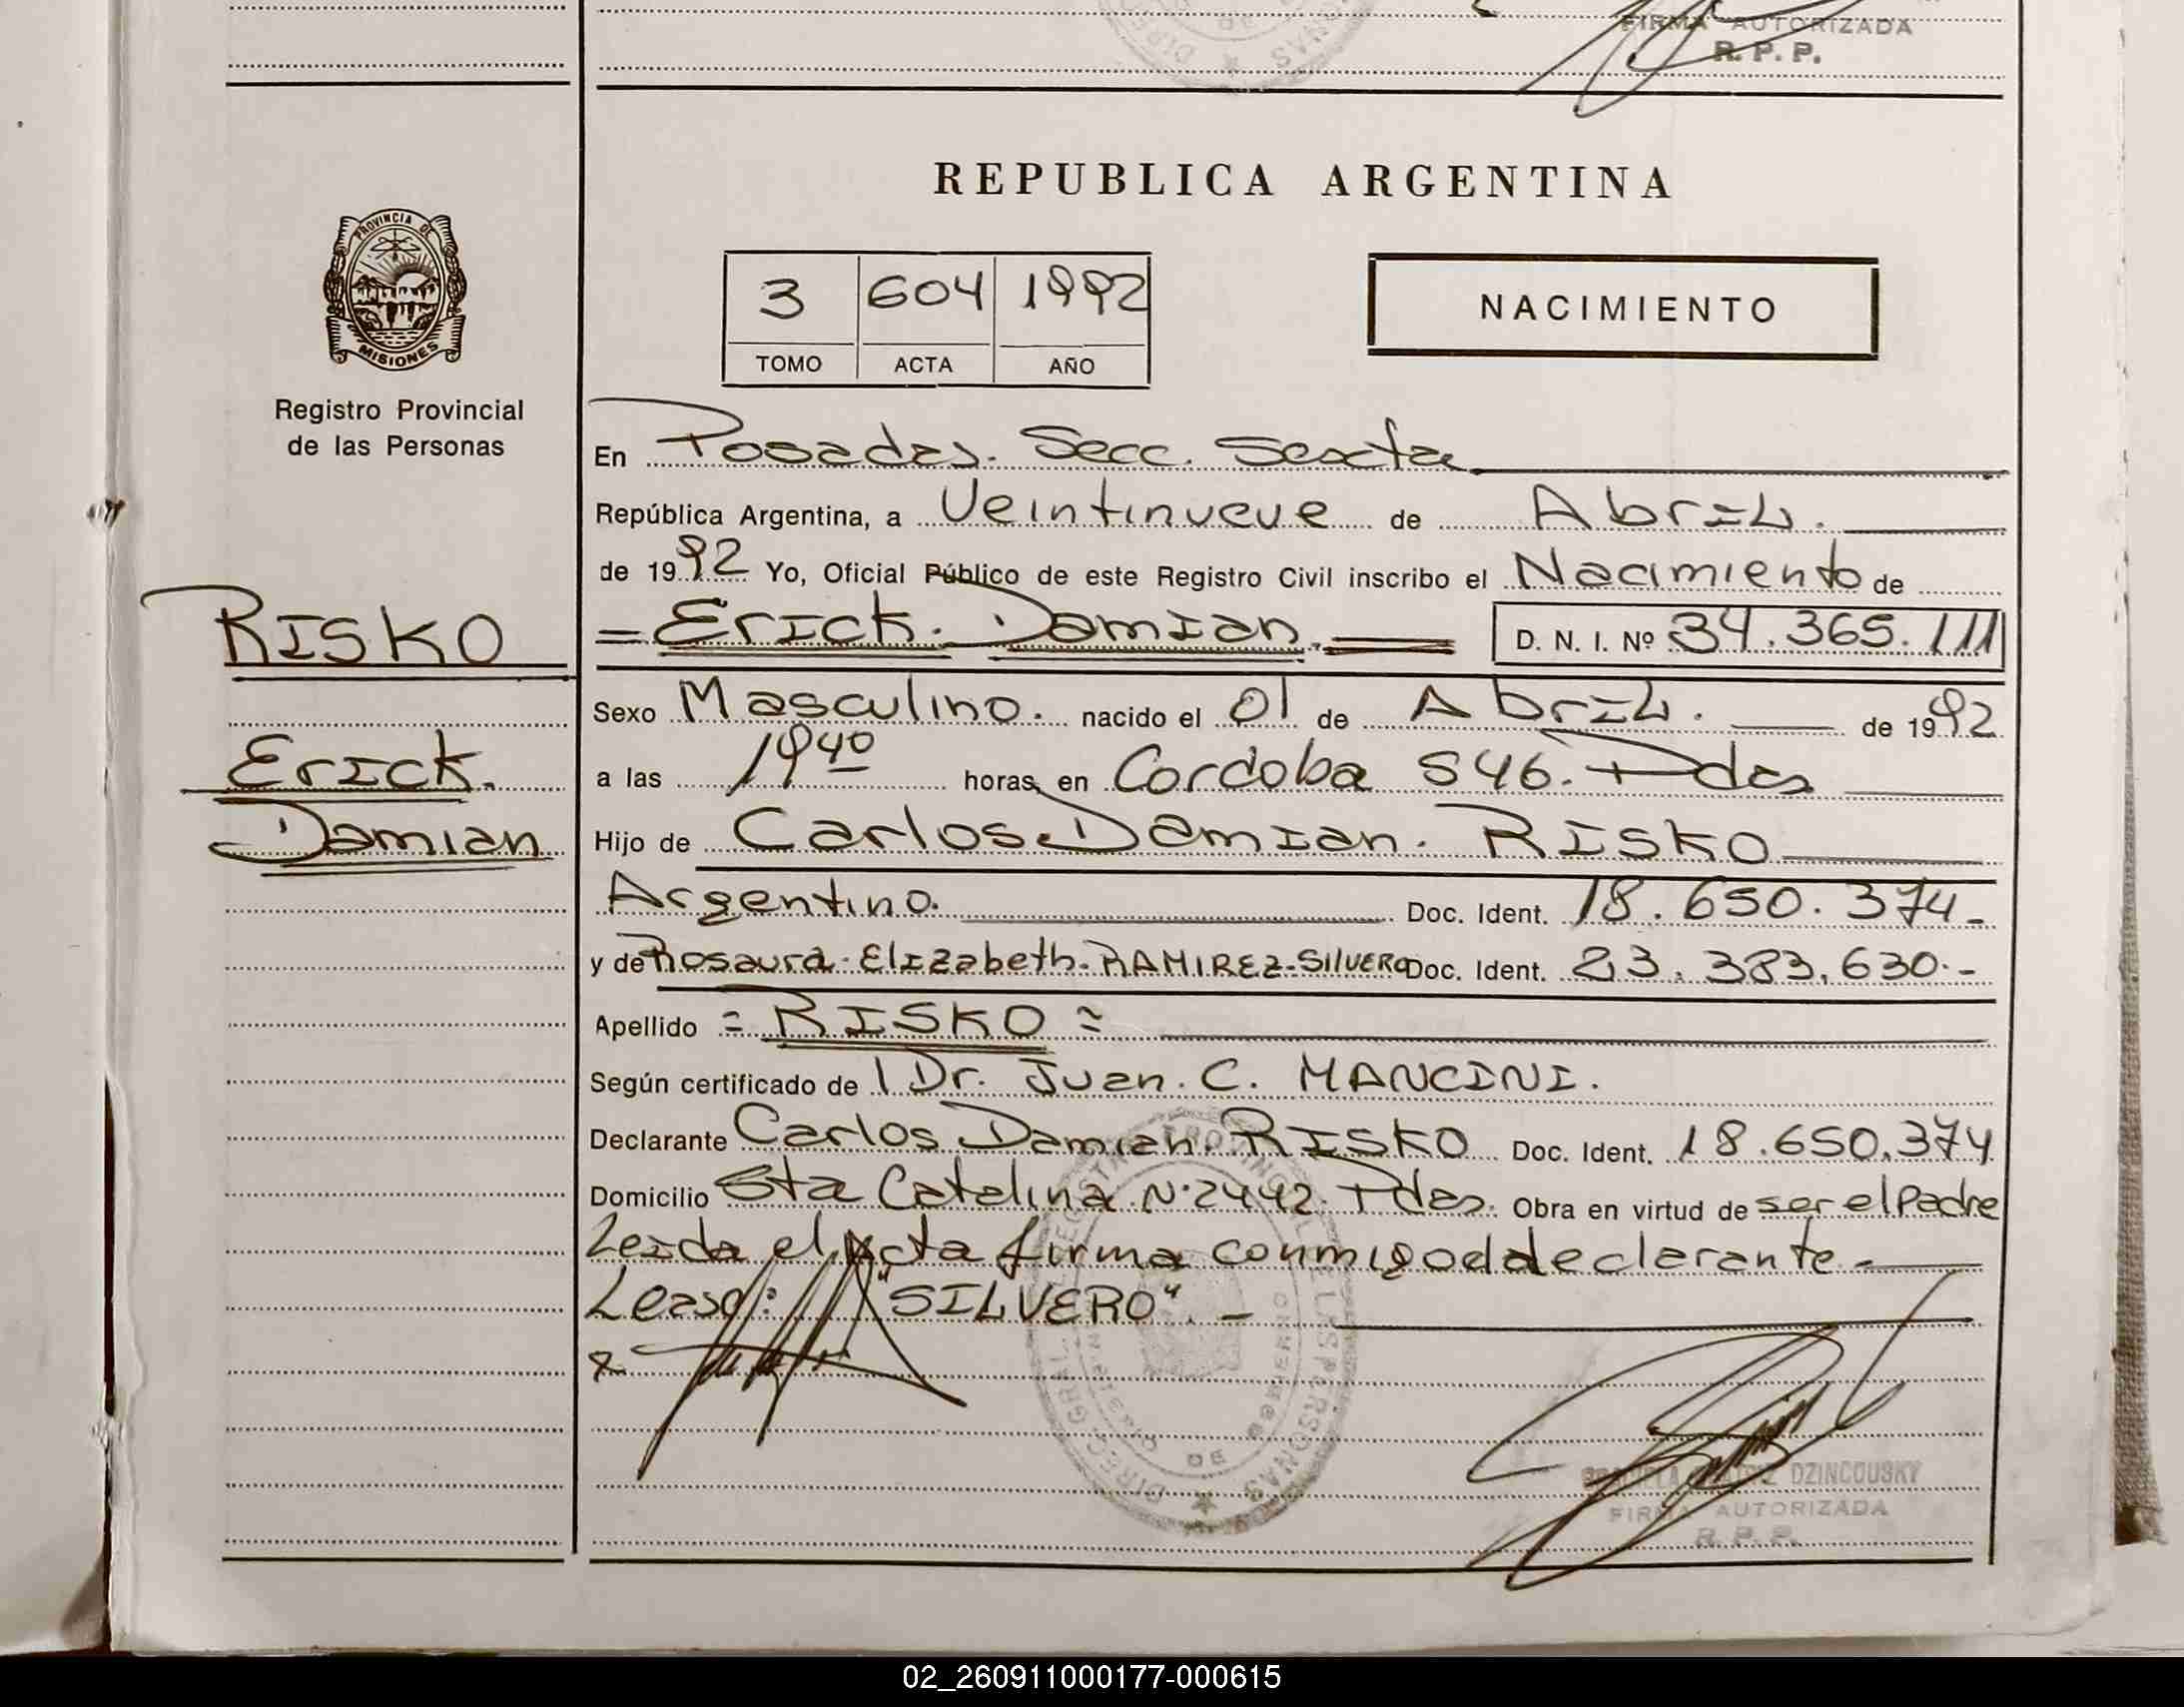 FIRMA AUTORIZADA
R. P. P.
REPUBLICA ARGENTINA
PROVINCIA DE
MISIONES
Registro Provincial
de las Personas
3 604 1992
TOMO ACTA AÑO
NACIMIENTO
En Posadas. Secc. Sexta
República Argentina, a Veintinueve de Abril.
de 1992 Yo, Oficial Público de este Registro Civil inscribo el Nacimiento de
RISKO
= Erick. Damian. = D. N. I. Nº 34.365.111
Sexo Masculino. nacido el 01 de Abril. de 1992
Erick.
a las 19 40 horas, en Cordoba 546. Pdas
Damian
Hijo de Carlos Damian. RISKO
Argentino. Doc. Ident. 18.650.374-
y de Rosaura Elizabeth RAMIREZ-SILVERO Doc. Ident. 23.383.630.-
Apellido = RISKO =
Según certificado de Dr. Juan. C. MANCINI.
Declarante Carlos Damian. RISKO Doc. Ident. 18.650.374
Domicilio Sta Catalina Nº 2442. Pdas. Obra en virtud de ser el Padre
Leida el Acta firma conmigo el declarante.-
Lease: "SILVERO".-
DZINCOUSKY
FIRMA AUTORIZADA
R. P. P.
02_260911000177-000615